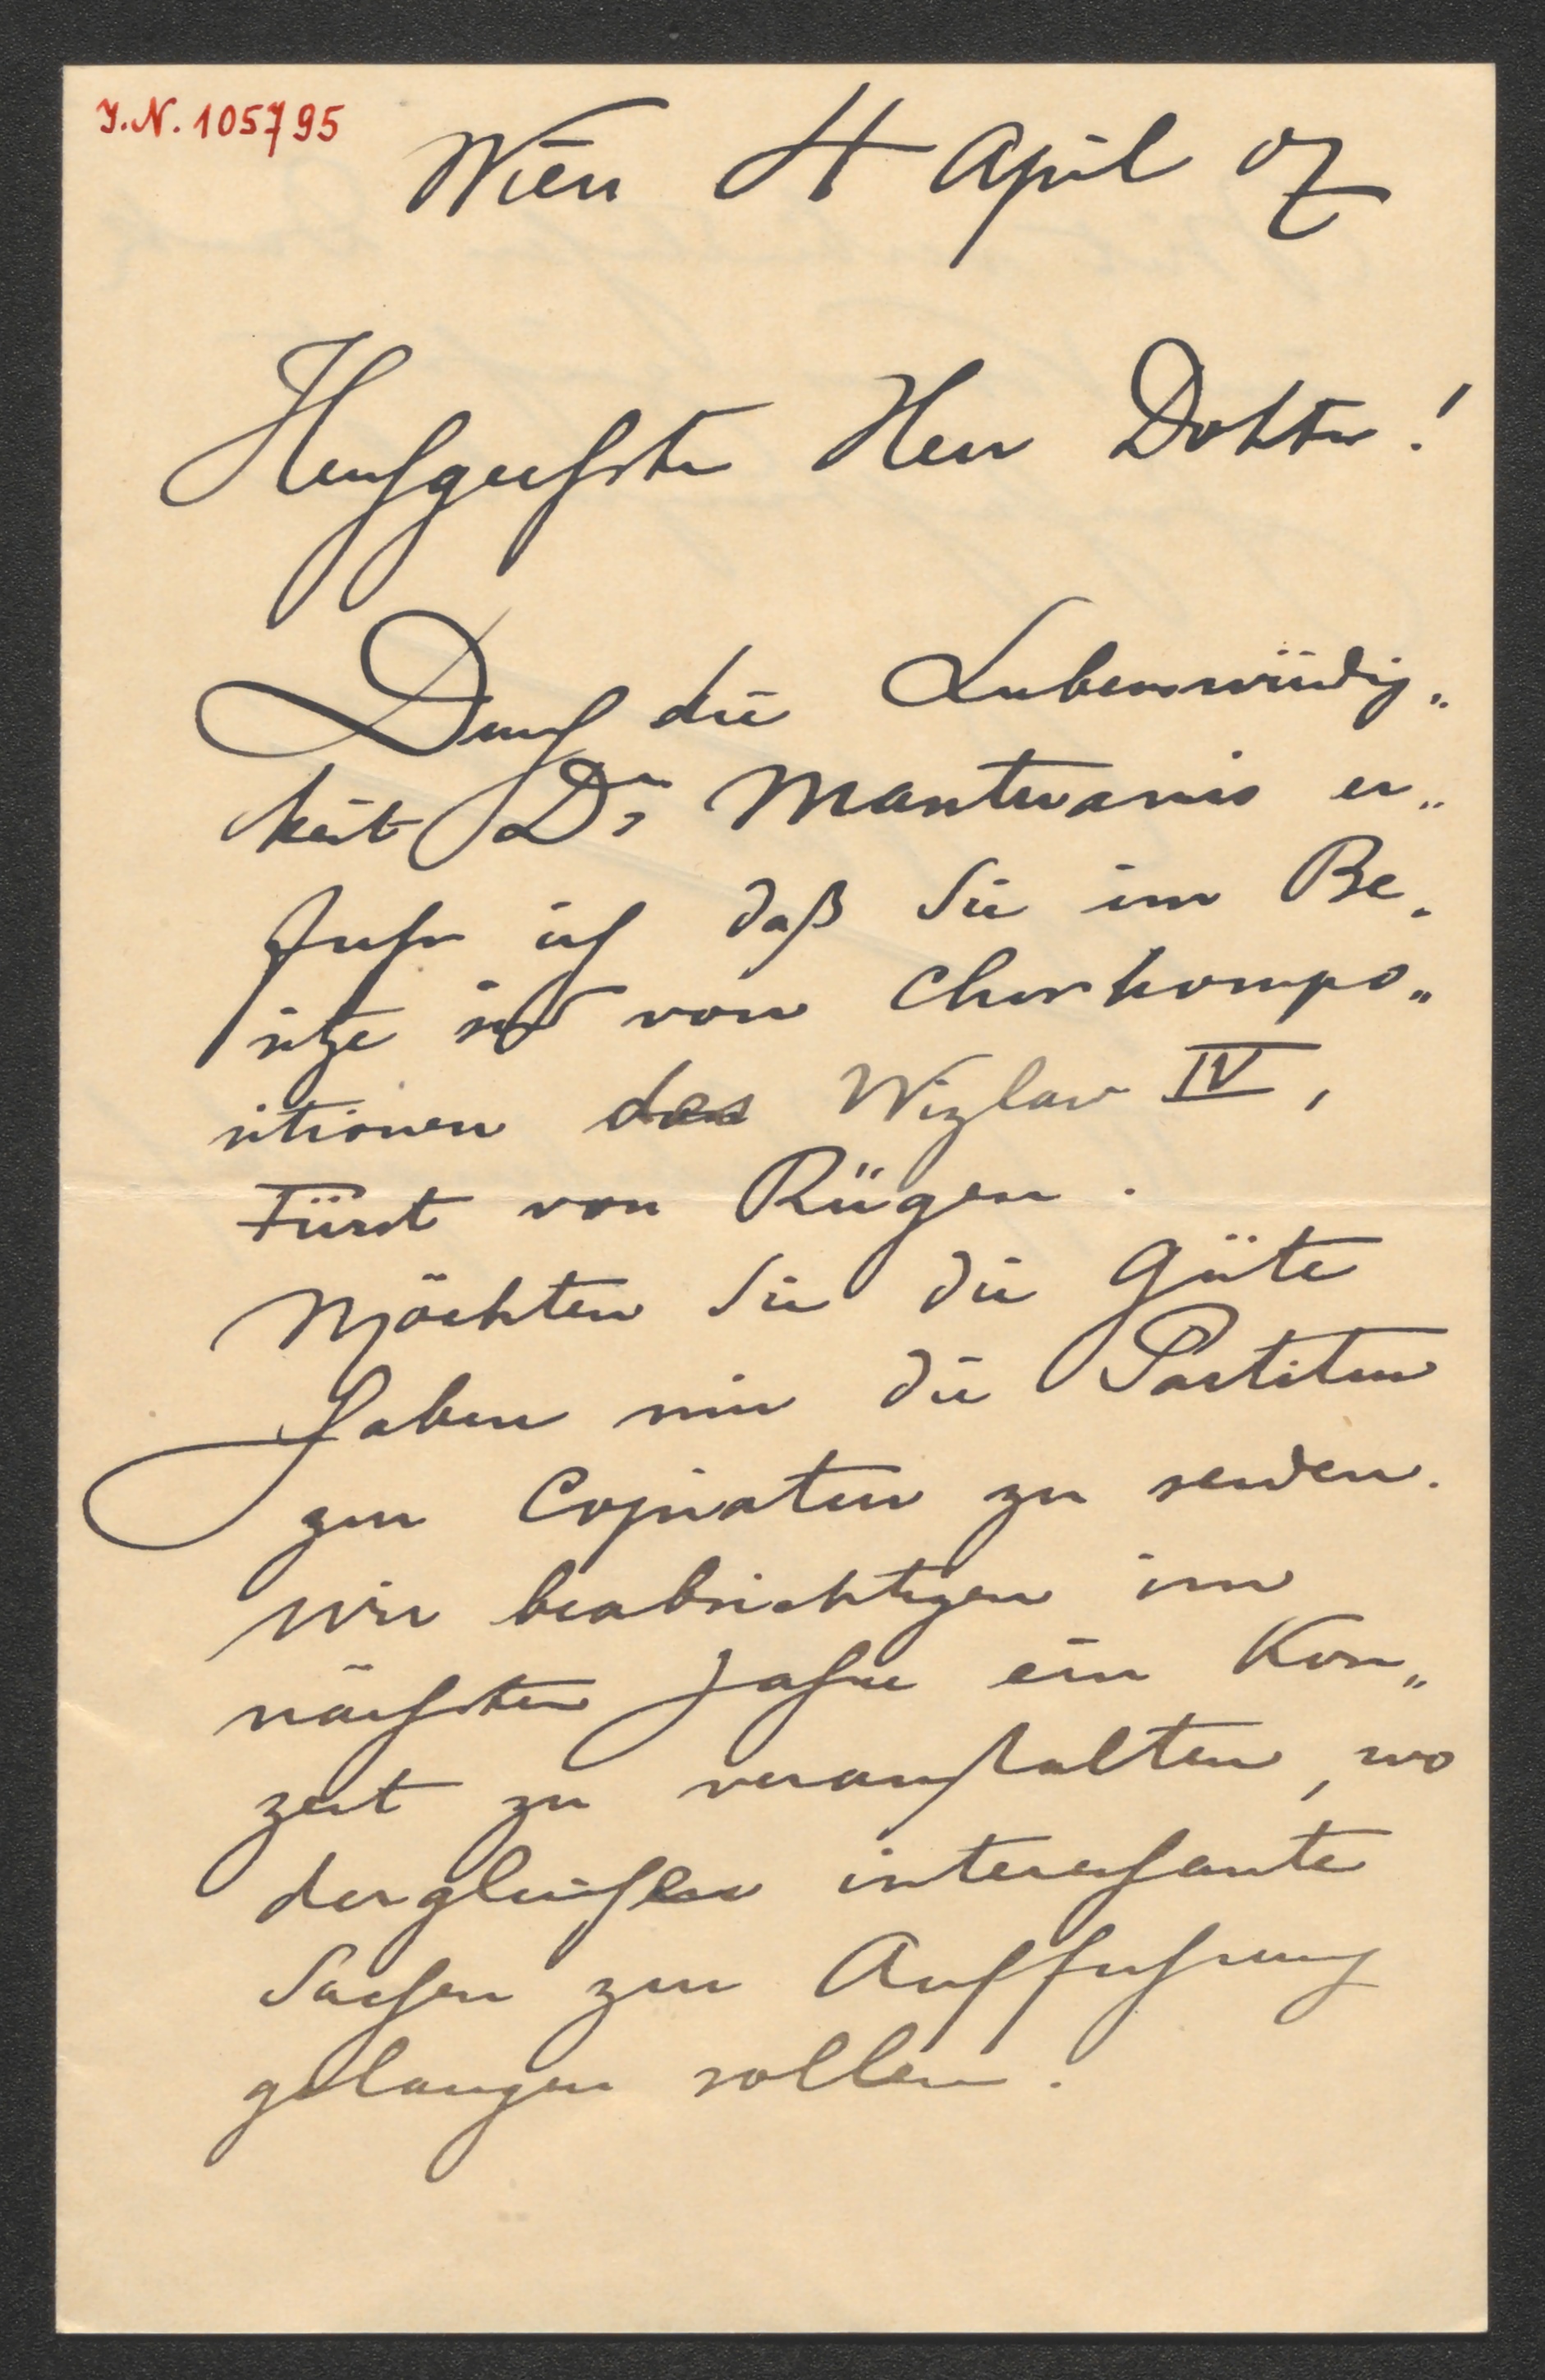 J.N. 105795
Wien 4 April 07
Hochgeehrter Herr Doktor!
Durch die Liebenswürdig„
keit Dr Mantuanis er„
fuhr ich daß Sie im Be„
sitze sind von Chorkompo„
sitionen des Wizlaw IV,
Fürst von Rügen.
Möchten Sie die Güte
haben mir die Partitur
zum Copiaturen zu senden.
Wir beabsichtigen im
nächsten Jahre ein Kon„
zert zu veranstalten, wo
dergleichen interessante
Sachen zur Aufführung
gelangen sollen.